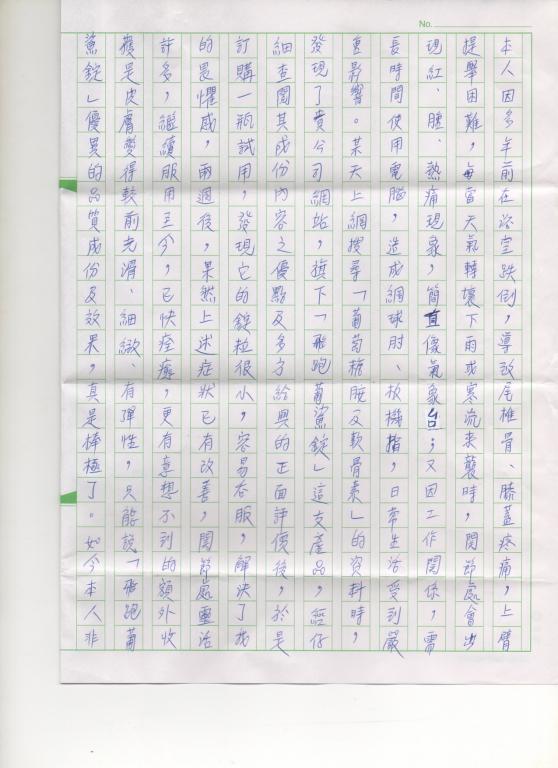 No.
本人因多年前在浴室跌倒，導致尾椎骨、膝蓋疼痛，上臂
提舉困難，每當天氣轉壞下雨或寒流來襲時，関節處會出
現紅、腫、熱痛現象，簡直像氣象台；又因工作関係，需
長時間使用電腦，造成網球肘、板機指，日常生活受到嚴
重影響。某天上網搜尋「葡萄糖胺及軟骨素」的資料時，
發現了貴公司網站，旗下「飛跑葡鯊錠」這支產品，經仔
細查閱其成份內容之優點及多方給與的正面評價後，於是
訂購一瓶試用，發現它的錠粒很小，容易吞服，解決了我
的畏懼感，兩週後，果然上述症狀已有改善，関節處靈活
許多，繼續服用至今，已快痊癒，更有意想不到的額外收
穫是皮膚變得較前光滑、細緻、有彈性，只能說「飛跑葡
鯊錠」優異的品質成份及效果，真是棒極了。如今本人非